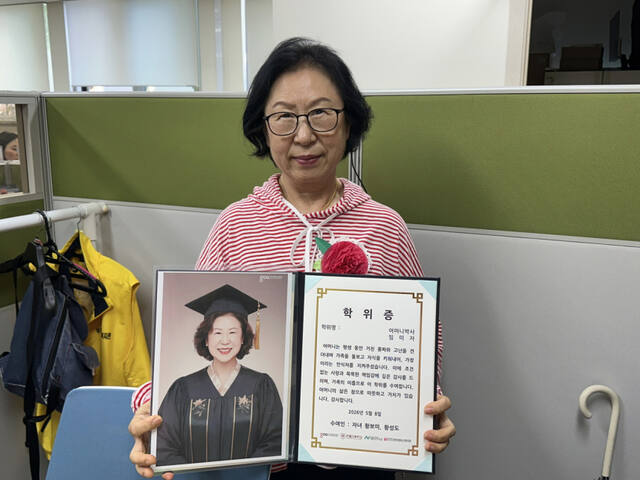 학 위 증
학위명 :
어머니박사
임 미 자
어머니는 평생 동안 거친 풍파와 고난을 견
뎌내며 가족을 돌보고 자식을 키워내어, 가정
이라는 안식처를 지켜주셨습니다. 이에 조건
없는 사랑과 묵묵한 책임감에 깊은 감사를 드
리며, 가족의 이름으로 이 학위를 수여합니다.
어머니의 삶은 참으로 따뜻하고 가치가 있습
니다. 감사합니다.
2026년 5월 8일
수여인 : 자녀 황보미, 황성도